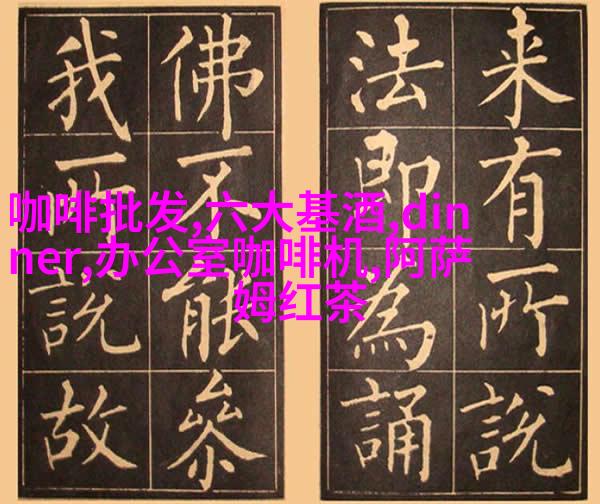 来有所說
法即為誦
佛不能參
我所說故
咖啡批发,六大基酒,din
ner,办公室咖啡机,阿萨
姆红茶